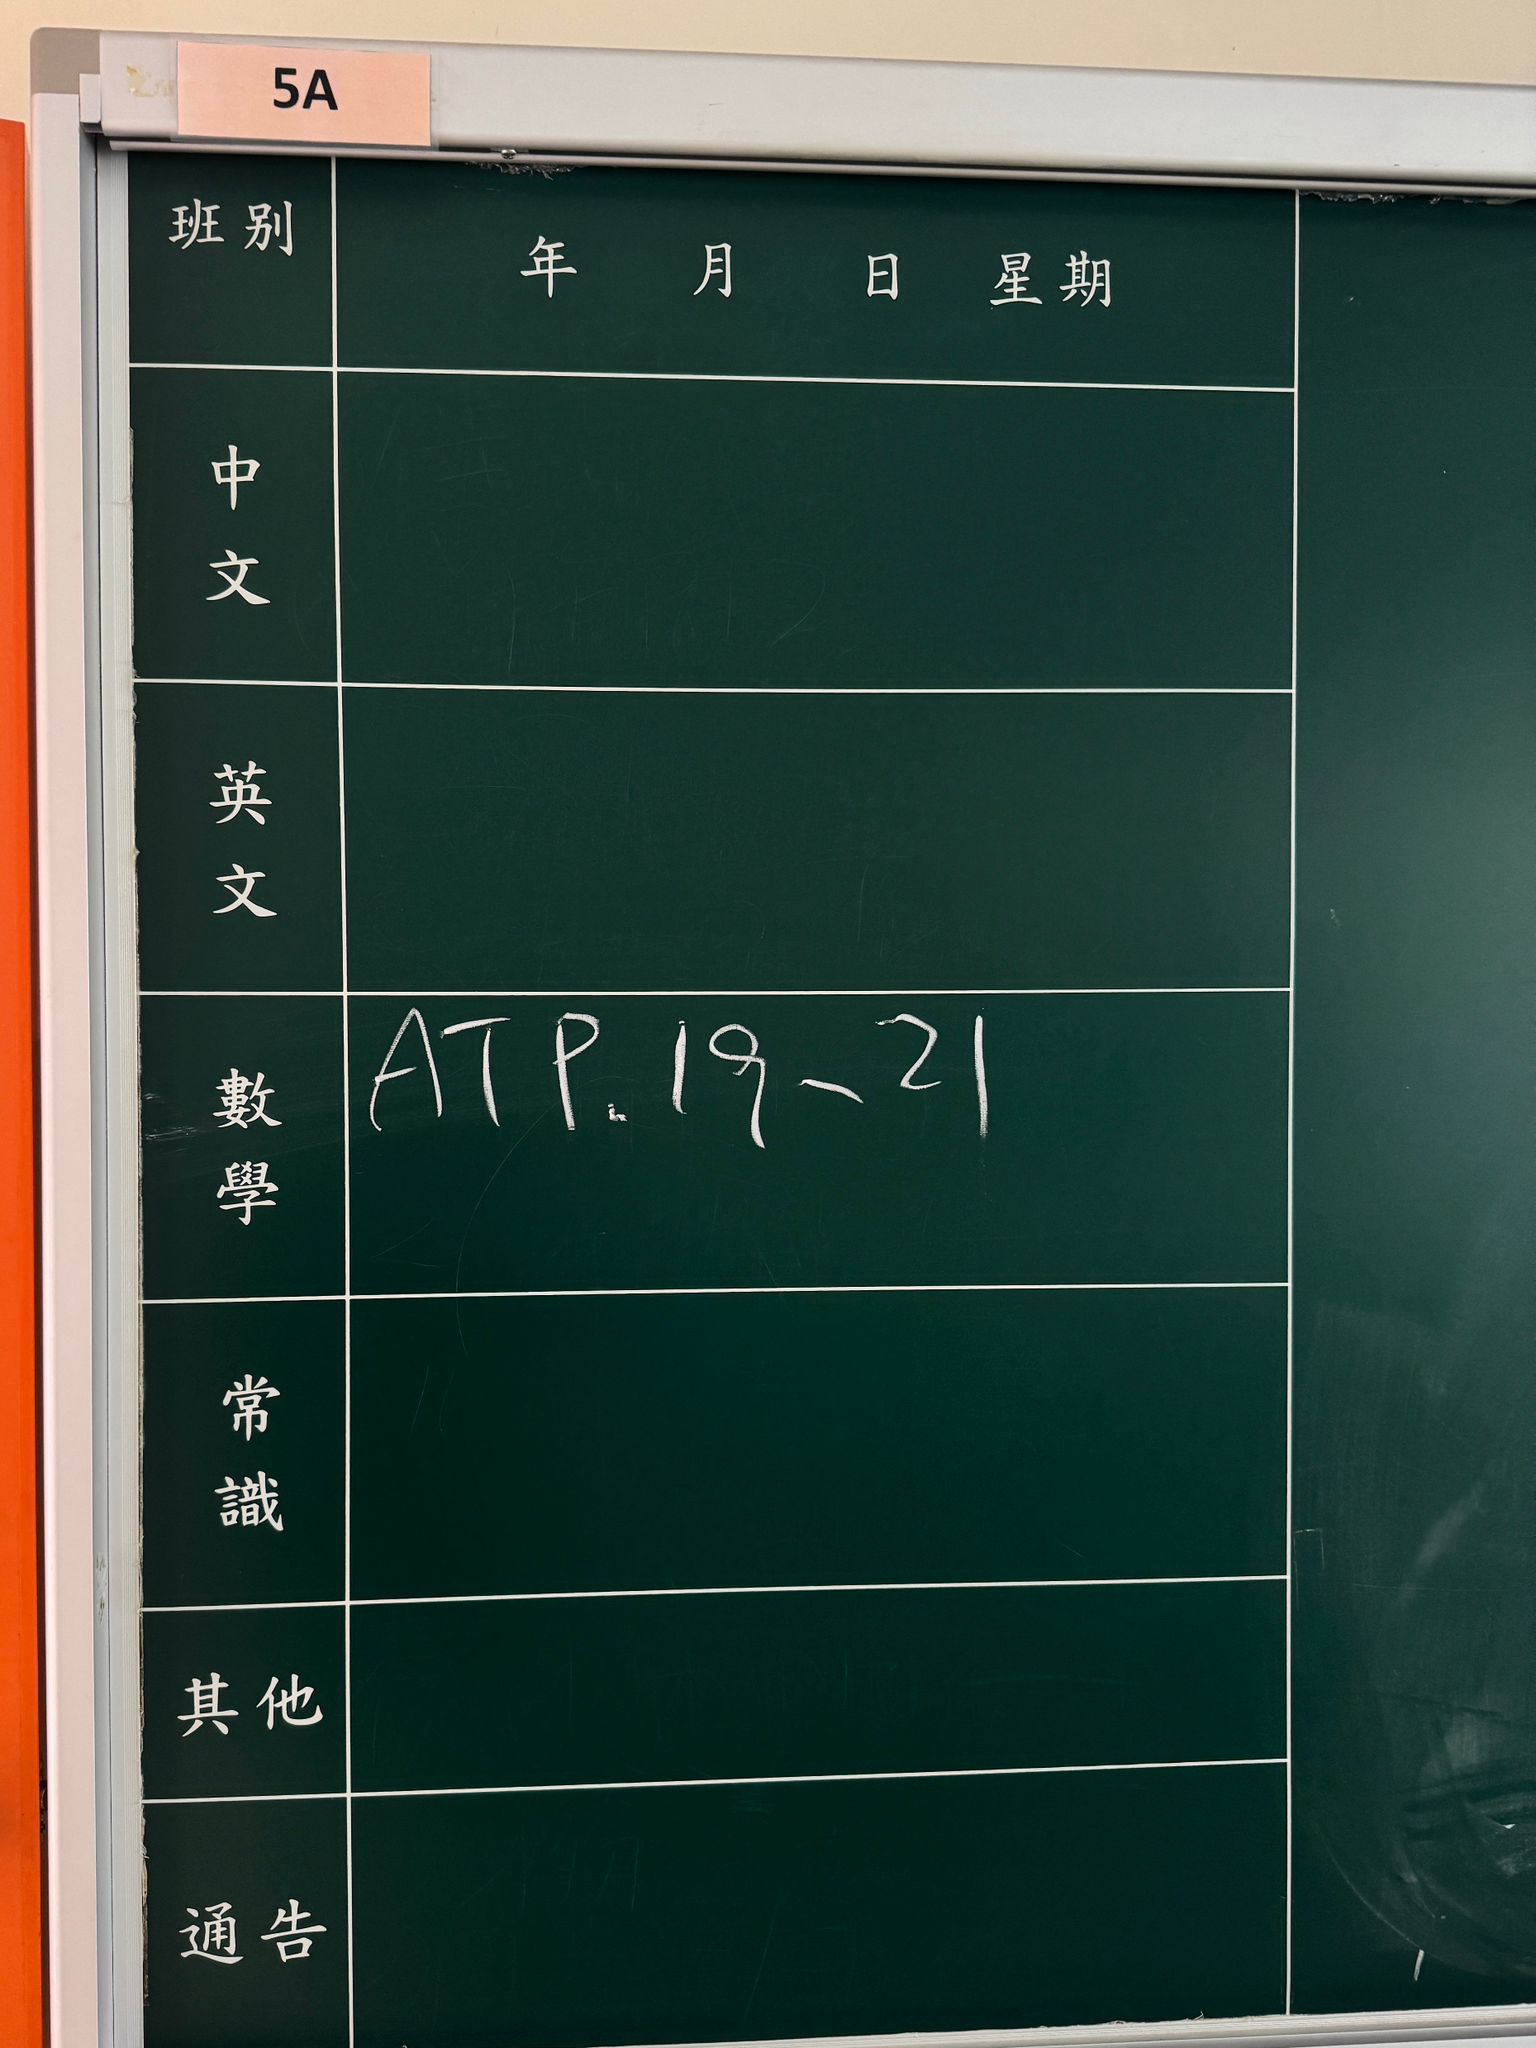 5A
班別
年 月 日 星期
中文
英文
數學
ATP.19-21
常識
其他
通告